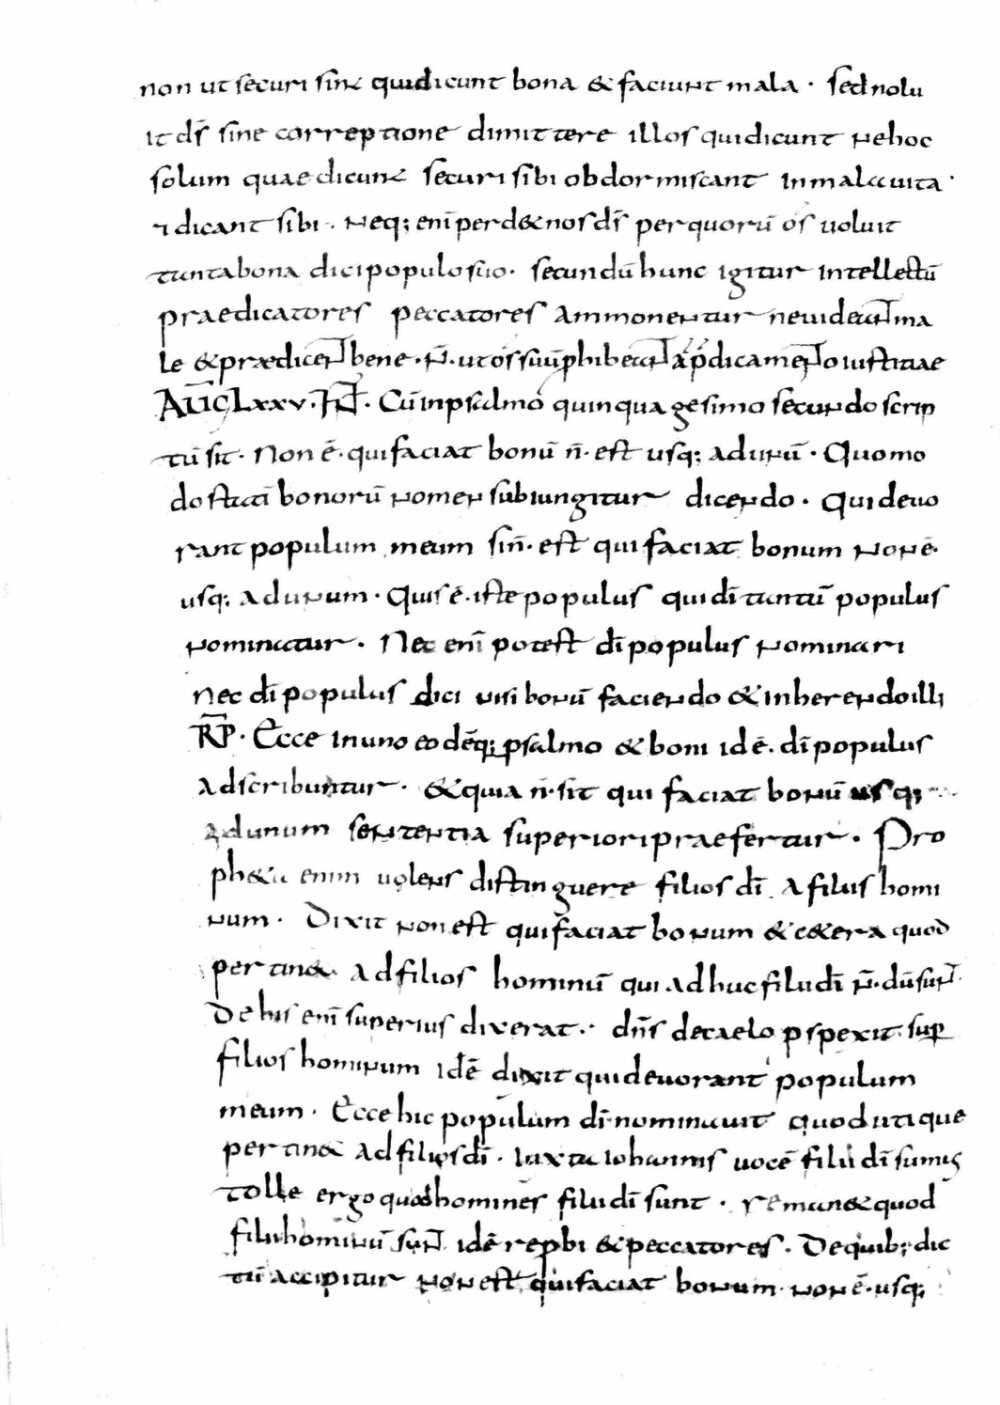 non ut securi sint qui dicunt bona & faciunt mala · sed nolu
it ds̄ sine correptione dimittere illos qui dicunt ne hoc
solum quae dicunt securi sibi obdormiscant in mala uita ·
⁊ dicant sibi · neq; enī perd& nos ds̄ per quorū os uoluit
tanta bona dici populo suo · secundū hunc igitur intellectū
praedicatores peccatores ammonentur ne uideant ma
le & prædicent bene · n̄ · ut os suū phibeant a p̄dicamento iustitiae
AUḠ LXXV · INT̄ · Cū in psalmo quinquagesimo secundo scrip
tū sit · Non ē · qui faciat bonū n̄ · est usq; ad unū · Quomo
do statī bonorū nomen subiungitur dicendo · Qui deuo
rant populum meum si n̄ · est qui faciat bonum non ē ·
usq; ad unum · Quis ē · iste populus qui dī tantū populus
nominatur · Nec enī potest dī populus nominari
nec dī populus dici nisi bonū faciendo & inherendo illi
RP̄ · Ecce in uno eodēq; psalmo & boni idē · dī populus
adscribuntur · & quia n̄ · sit qui faciat bonū usq;
ad unum sententia superiori praefertur · Pro
ph&a enim uolens distinguere filios dī a filiis homi
num · Dixit non est qui faciat bonum & c&era quod
pertin& ad filios hominū qui adhuc filii dī n̄ · dū sunt
De his enī superius dixerat · · dn̄s de caelo pspexit sup
filios hominum idē dixit qui deuorant populum
meum · Ecce hic populum dī · nominauit quod utique
pertin& ad filios dī · Iuxta Iohannis uocē filii dī sumus
tolle ergo quod homines filii dī sunt · reman& quod
filii hominū sunt idē reprobi & peccatores · De quib; dic
tū accipitur non est qui faciat bonum · non ē · usq;